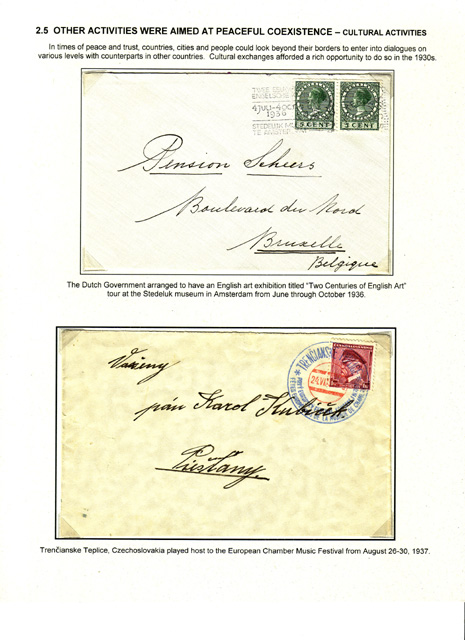 2.5 OTHER ACTIVITIES WERE AIMED AT PEACEFUL COEXISTENCE – CULTURAL ACTIVITIES
In times of peace and trust, countries, cities and people could look beyond their borders to enter into dialogues on
various levels with counterparts in other countries. Cultural exchanges afforded a rich opportunity to do so in the 1930s.
TWEE
ENGELSCHE
4 JULI-4 OCT
1936
STEDELIJK
TE AMSTER
5 CENT
5 CENT
Pension Scheers
Boulevard du Nord
Bruxelles
Belgique
The Dutch Government arranged to have an English art exhibition titled "Two Centuries of English Art"
tour at the Stedeluk museum in Amsterdam from June through October 1936.
TRENČIANSK
24.VIII
Vážený
pán Karol Kubíček
Piešťany
Trenčianske Teplice, Czechoslovakia played host to the European Chamber Music Festival from August 26-30, 1937.